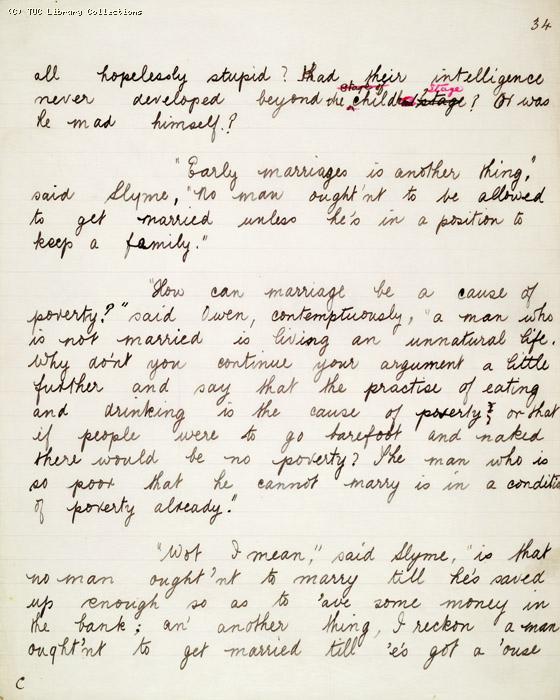 (C) TUC Library Collections
34
all hopelessly stupid? Had their intelligence
never developed beyond the childhood stage? Or was
he mad himself?
"Early marriages is another thing,"
said Slyme, "No man ought'nt to be allowed
to get married unless he's in a position to
keep a family."
"How can marriage be a cause of
poverty?" said Owen, contemptuously, "a man who
is not married is living an unnatural life.
Why don't you continue your argument a little
further and say that the practise of eating
and drinking is the cause of poverty? or that
if people were to go barefoot and naked
there would be no poverty? The man who is
so poor that he cannot marry is in a conditio
of poverty already."
"Wot I mean," said Slyme, "is that
no man ought'nt to marry till he's saved
up enough so as to 'ave some money in
the bank; an' another thing, I reckon a man
ought'nt to get married till 'e's got a 'ouse
C